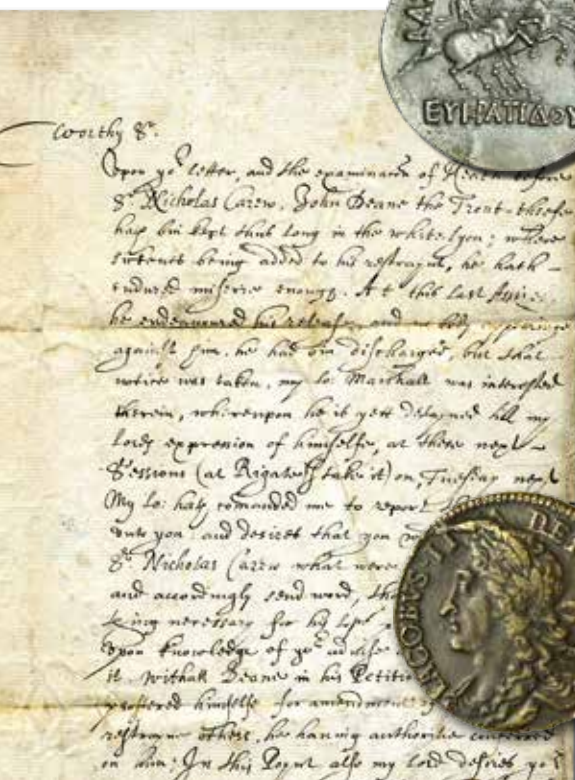 ΕΥΚΡΑΤΙΔΟΥ
Worthy Sr.
Upon yor letter, and the examinacon of Heath before
Sr Nicholas Carew, John Beane the Trout-theefe
hath bin kept thus long in the white Lyon; where
sicknes being added to his restraynt, he hath
endured miserie enough. At this last Assise
he endeavoured his release, and no body appearing
against him, he had bin discharged, but that
notice was taken, my lo: Marshall was interessed
therein, whereupon he is yett detayned till my
lords expression of himselfe, at these next
Sessions (at Rigate I take it) on Tuesday next
My lo: hath comanded me to report
unto you: and desires that you
Sr Nicholas Carew what were
and accordingly send word,
being necessary for his
upon knowledge of yor advise
it. Withall Beane in his Petition
proffered himselfe for amendment
restrayne others, he having authoritie conferred
on him: In this Poynt also my lord desires yor
IACOBUS II DEI